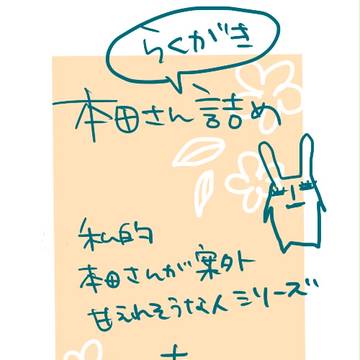 らくがき
本田さん詰め
私的
本田さんが案外
甘えれそうな人シリーズ
+